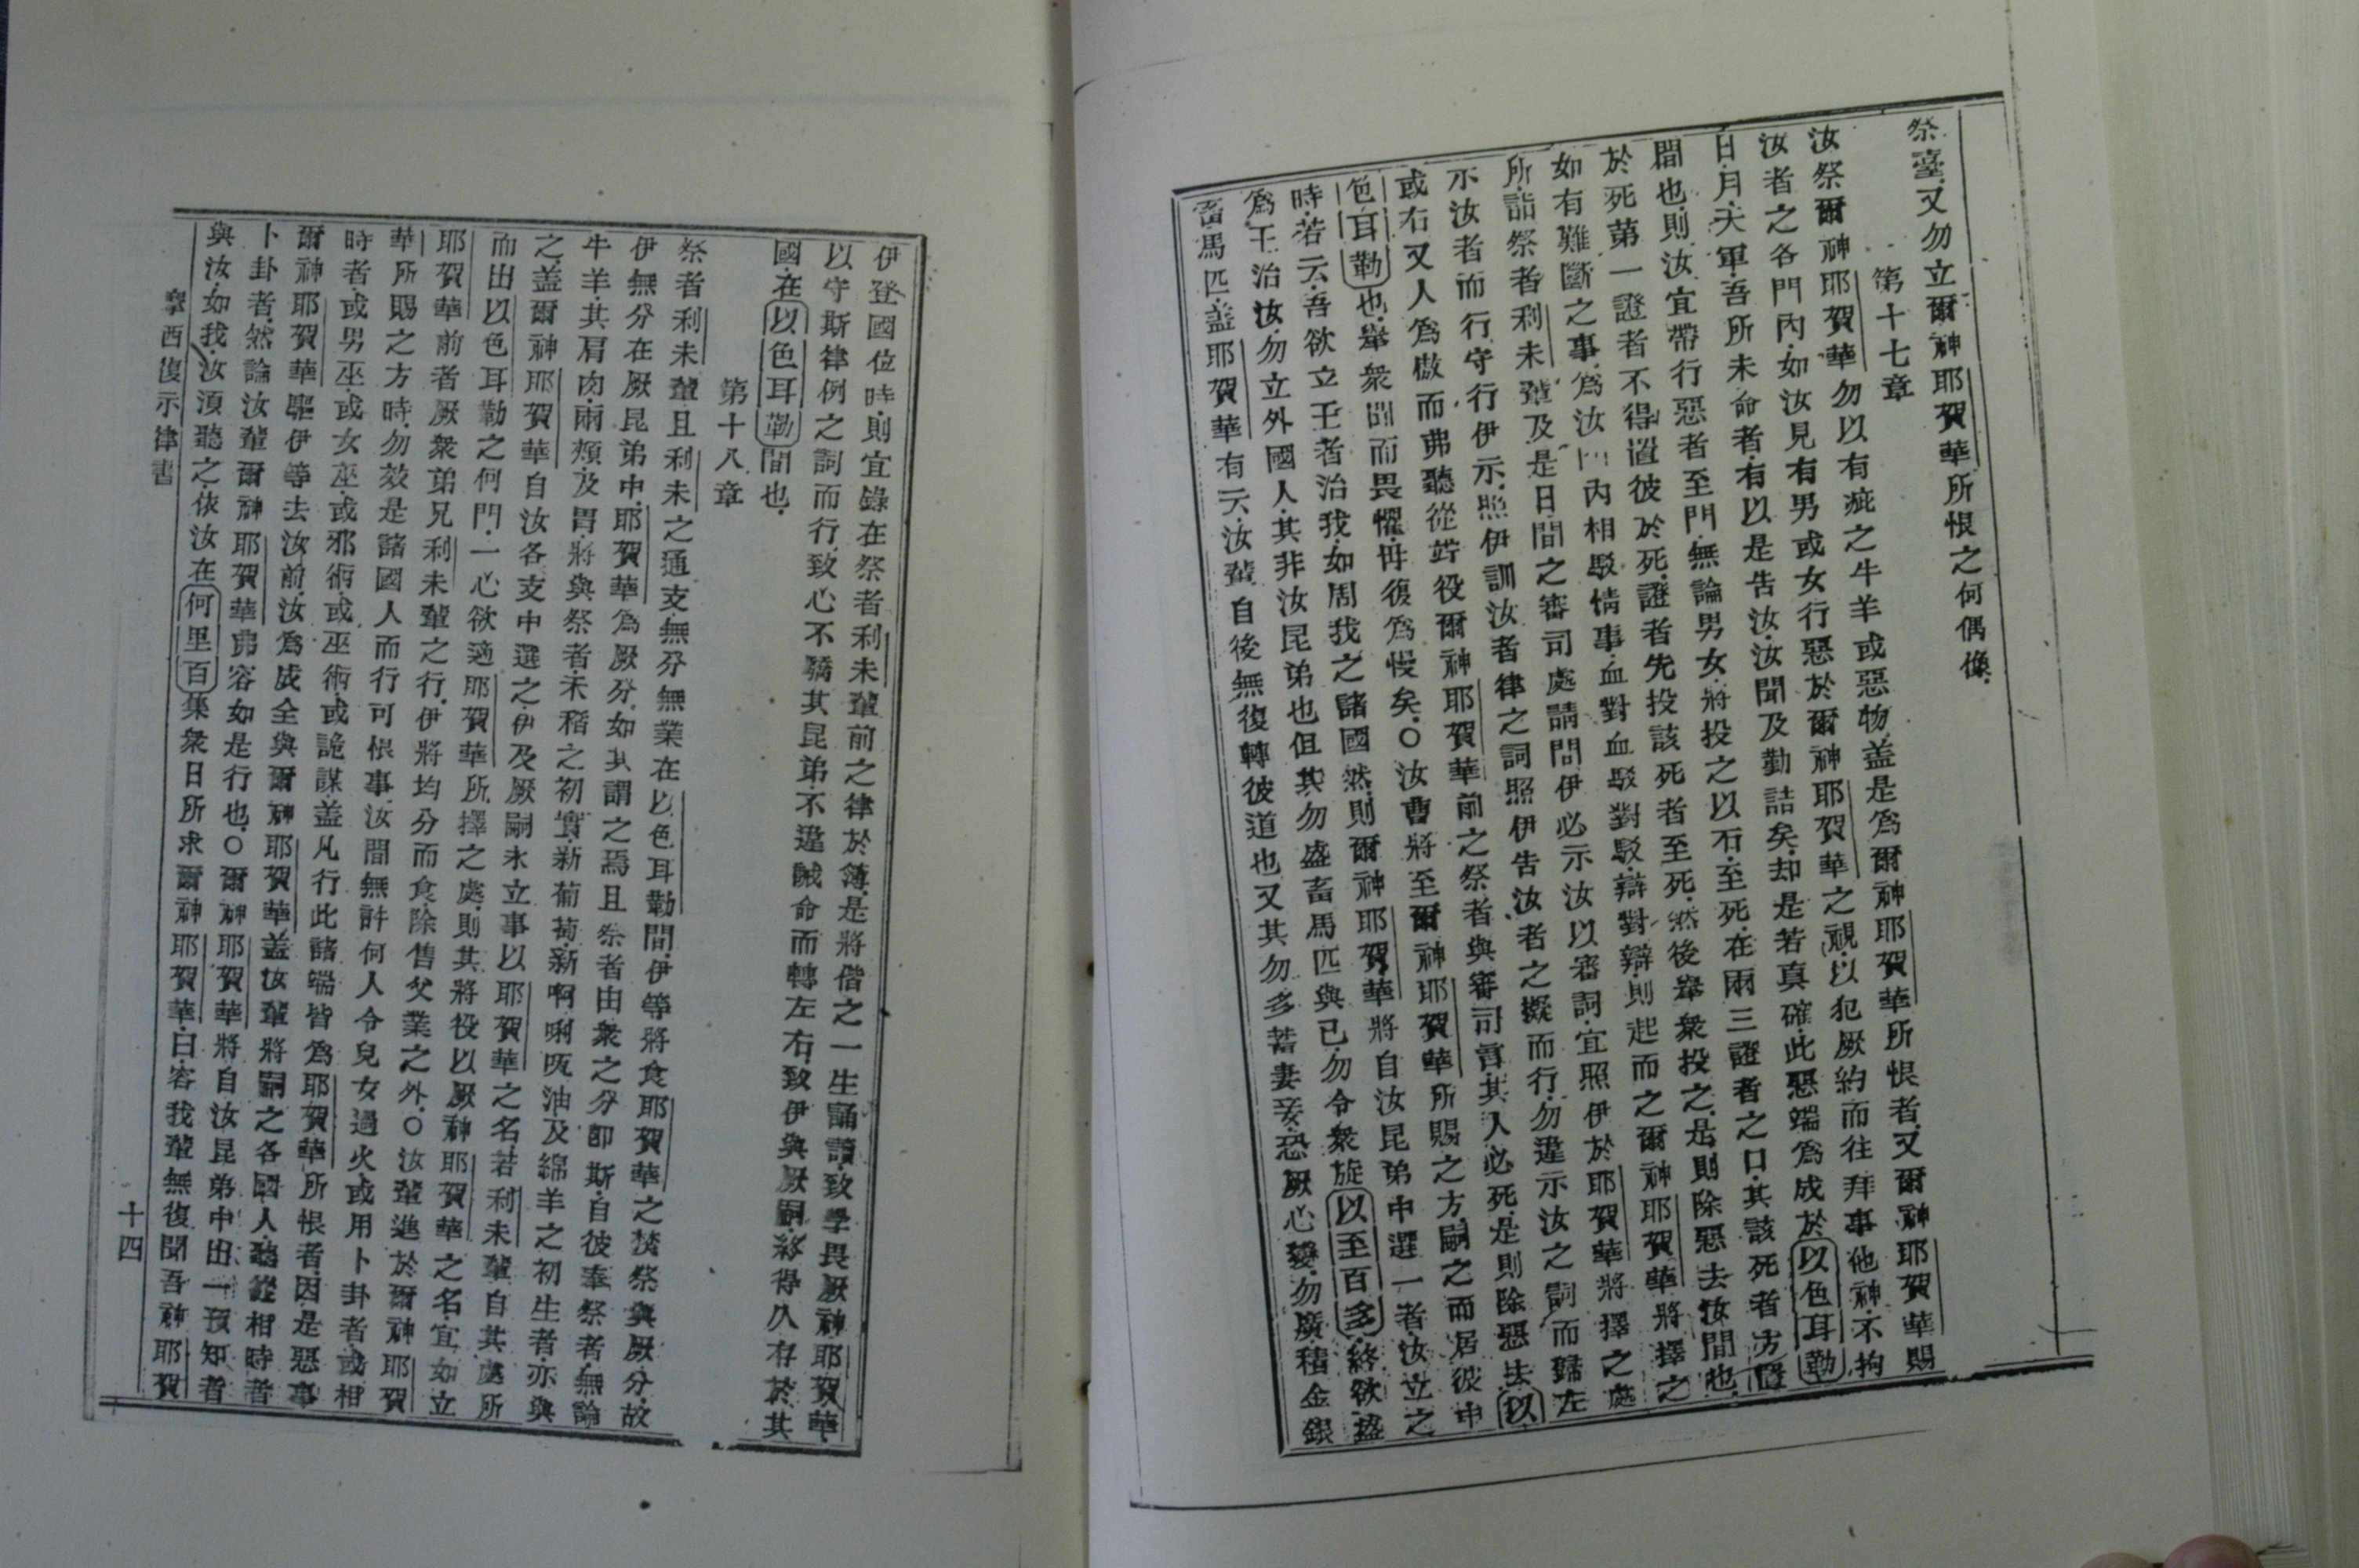 祭臺.又勿立爾神耶賀華所恨之何偶像.
第十七章
汝祭爾神耶賀華勿以有疵之牛羊或惡物.盖是爲爾神耶賀華所恨者.又爾神耶賀華賜
汝者之各門內.如汝見有男或女行惡於爾神耶賀華之視.以犯厥約而往拜事他神.不拘
日.月.天軍.吾所未命者.有以是告汝.汝聞及勤詰矣.却是若真確.此惡端爲成於以色耳勒
間也.則汝宜帶行惡者至門.無論男女.將投之以石.至死.在兩三證者之口.其該死者方置
於死.第一證者不得置彼於死.證者先投該死者至死.然後舉衆投之.是則除惡去汝間也.
如有難斷之事.爲汝門內相駁情事.血對血駁對駁.辯對辯.則起而之爾神耶賀華將擇之
所.詣祭者利未輩及是日間之審司處請問.伊必示汝以審詞.宜照伊於耶賀華將擇之處
示汝者而行.守行伊示.照伊訓汝者律之詞照伊告汝者之擬而行.勿違示汝之詞而歸左
或右.又人爲傲而弗聽從竚役爾神耶賀華前之祭者與審司言.其人必死.是則除惡去以
色耳勒也.舉衆聞而畏懼.毋復爲慢矣.○汝曹將至爾神耶賀華所賜之方嗣之而居彼中
時.若云.吾欲立王者治我.如周我之諸國然.則爾神耶賀華將自汝昆弟中選一者.汝立之
爲王治汝.勿立外國人.其非汝昆弟也.但其勿盛畜馬匹與已.勿令衆旋以至百多.終欲盛
畜馬匹.盖耶賀華有云.汝輩自後無復轉彼道也.又其勿多蓄妻妾.恐厥心變.勿廣積金銀
伊登國位時.則宜錄在祭者利未輩前之律於簿.是將偕之一生誦讀.致學畏厥神耶賀華.
以守斯律例之詞而行.致心不驕其昆弟.不違誡命而轉左右.致伊與厥嗣.終得久存於其
國.在以色耳勒間也.
第十八章
祭者利未輩.且利未之通支.無分無業在以色耳勒間.伊等將食耶賀華之焚祭與厥分.故
伊無分在厥昆弟中.耶賀華爲厥分.如其謂之焉.且祭者由衆之分卽斯.自彼奉祭者.無論
牛羊.其肩肉.兩頰及胃.將與祭者.禾稻之初實.新葡萄.新啊唎㕷油及綿羊之初生者.亦與
之.盖爾神耶賀華自汝各支中選之.伊及厥嗣永立事以耶賀華之名.若利未輩自其處所
而出以色耳勒之何門.一心欲適耶賀華所擇之處.則其將役以厥神耶賀華之名.宜如立
耶賀華前者厥衆弟兄利未輩之行.伊將均分而食.除售父業之外.○汝輩進於爾神耶賀
華所賜之方時.勿效是諸國人而行可恨事.汝間無許何人令兒女過火或用卜卦者.或相
時者.或男巫.或女巫.或邪術.或巫術.或詭謀.盖凡行此諸端皆爲耶賀華所恨者.因是惡事
爾神耶賀華驅伊等去汝前.汝爲成全與爾神耶賀華.盖汝輩將嗣之各國人.聽從相時者
卜卦者.然論汝輩爾神耶賀華弗容如是行也.○爾神耶賀華將自汝昆弟中出一預知者
與汝.如我.汝須聽之.依汝在何里百集衆日所求爾神耶賀華.曰.容我輩無復聞吾神耶賀
摩西復示律書
十四